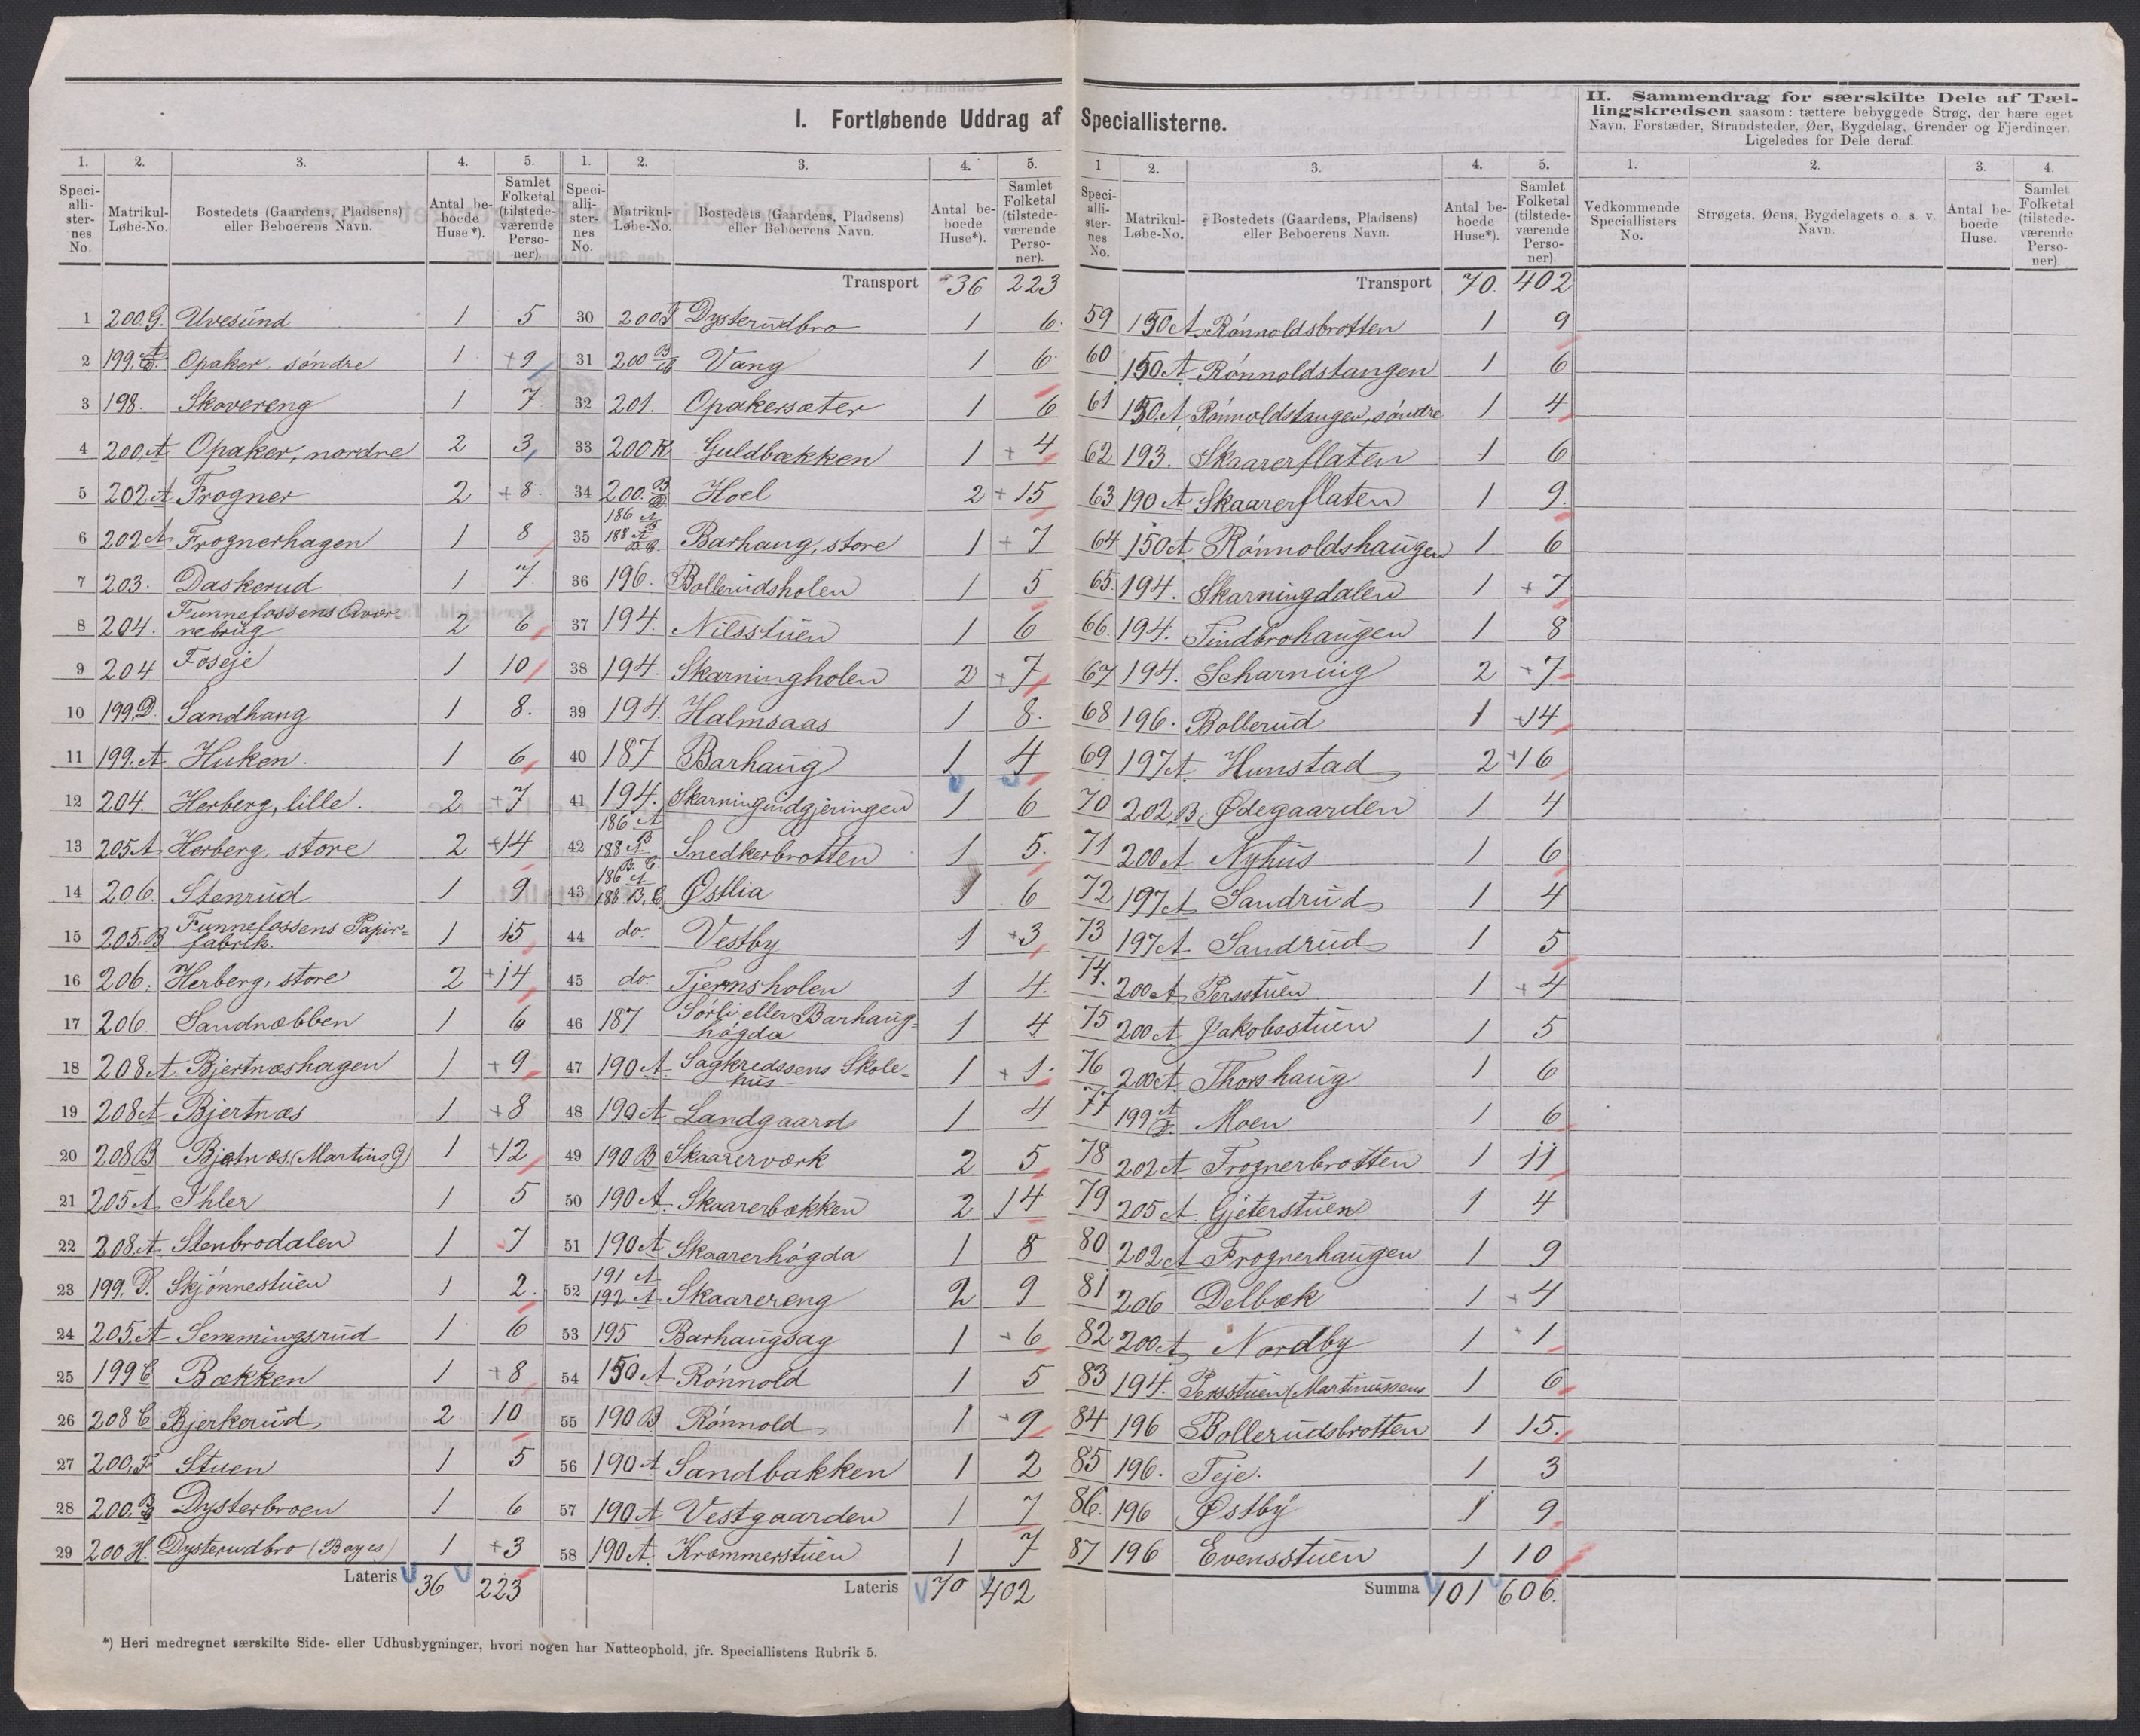 I. Fortløbende Uddrag af Speciallisterne.
II. Sammendrag for særskilte Dele af Tæl-
lingskredsen saasom: tættere bebyggede Strøg, der bære eget
Navn, Forstæder, Strandsteder, Øer, Bygdelag, Grender og Fjerdinger.
Ligeledes for Dele deraf.
1. 2. 3. 4. 5.
Speciallisternes No. Matrikul-Løbe-No. Bostedets (Gaardens, Pladsens) eller Beboerens Navn. Antal beboede Huse*). Samlet Folketal (tilstedeværende Personer).
1 200.G. Uvesund 1 5
2 199. Opaker, søndre 1 +9
3 198. Skovereng 1 7
4 200.A Opaker, nordre 2 3
5 202A Frogner 2 +8.
6 202A Frognerhagen 1 8
7 203. Daskerud 1 7
8 204. Funnefossens Qvær-
nebrug 2 6
9 204 Foseje 1 10
10 199.D. Sandhaug 1 8.
11 199.A Huken. 1 6
12 204. Herberg, lille. 2 +7
13 205A Herberg, store 2 +14
14 206. Stenrud 1 9
15 205.B Funnefossens Papir=
fabrik. 1 15
16 206. Herberg, store 2 +14
17 206. Sandnæbben 1 6
18 208A. Bjertnæshagen 1 +9
19 208A Bjertnæs 1 +8
20 208B Bjetnæs (Martins G) 1 +12
21 205A Ihler 1 5
22 208.A. Stenbrodalen 1 7
23 199.D. Skjønnestuen 1 2.
24 205.A Semmingsrud 1 6
25 199C Bækken 1 +8
26 208C Bjerkerud 2 10
27 200.F Stuen 1 5
28 200. Dysterbroen 1 6
29 200H. Dysterudbro (Boyes) 1 +3
Lateris 36 223
1. 2. 3. 4. 5.
Speciallisternes No. Matrikul-Løbe-No. Bostedets (Gaardens, Pladsens) eller Beboerens Navn. Antal beboede Huse*). Samlet Folketal (tilstedeværende Personer).
Transport 36 223
30 200 Dysterudbro 1 6.
31 200 B Vang 1 6
32 201. Opakersæter 1 6
33 200K Guldbækken 1 +4
34 200. B Hoel 2 +15
35 186 A 188 A Barhaug, store 1 +7
36 196. Bollerudsholen 1 5
37 194. Nilsstuen 1 6
38 194. Skarningholen 2 +7
39 194. Halmsaas 1 8.
40 187 Barhaug 1 4
41 194. Skarningindgjeringen 1 6
42 186 A 188 A B Snedkerbrotten 1 5.
43 186 A 188 B, C Østlia 1 6
44 do. Vestby 1 +3
45 do. Tjernsholen 1 4.
46 187 Sørli eller Barhaug=
høgda 1 4
47 190A Sagkredssens Skole=
hus 1 +1
48 190A Landgaard 1 4
49 190B Skaarerværk 2 5
50 190A. Skaarerbækken 2 14
51 190A Skaarerhøgda 1 8
52 191 A 192 A Skaarereng 2 9
53 195 Barhaugsag 1 +6
54 150A Rønnold 1 5
55 190B Rønnold 1 +9
56 190A Sandbakken 1 2
57 190A Vestgaarden 1 7
58 190A. Kræmmerstuen 1 7
Lateris 70 402
1 2. 3. 4. 5.
Speciallisternes No. Matrikul-Løbe-No. Bostedets (Gaardens, Pladsens) eller Beboerens Navn. Antal beboede Huse*). Samlet Folketal (tilstedeværende Personer).
Transport 70. 402
59 150A Rønnoldsbrotten 1 9
60 150A Rønnoldstangen 1 6
61 150A Rønnoldstangen, søndre 1 4
62 193. Skaarerflaten 1 6
63 190A Skaarerflaten 1 9.
64 150A Rønnoldshaugen 1 6
65. 194. Skarningdalen 1 +7
66. 194. Tindbrohaugen 1 8
67 194. Scharning 2 +7
68 196. Bollerud 1 +14
69 197A. Hunstad 2 +16
70 202,B. Ødegaarden 1 4
71 200A Nyhus 1 6
72 197A Sandrud 1 4
73 197A Sandrud 1 5
74. 200A. Persstuen 1 +4
75 200A Jakobsstuen 1 5
76 200A. Thorshaug 1 6
77 199 Moen 1 6
78 202A Frognerbrotten 1 11
79 205A. Gjeterstuen 1 4
80 202A Frognerhaugen 1 9
81 206 Delbæk 1 +4
82 200A Nordby 1 1
83 194. Persstuen (Martinussens 1 6
84 196 Bollerudsbrotten 1 15.
85 196. Teje. 1 3
86. 196 Østby 1 9
87 196 Evensstuen 1 10
Summa 101 606.
1. 2. 3. 4.
Vedkommende Speciallisters No. Strøgets, Øens, Bygdelagets o. s. v. Navn. Antal beboede Huse. Samlet Folketal (tilstedeværende Personer).
*) Heri medregnet særskilte Side- eller Udhusbygninger, hvori nogen har Natteophold, jfr. Speciallistens Rubrik 5.